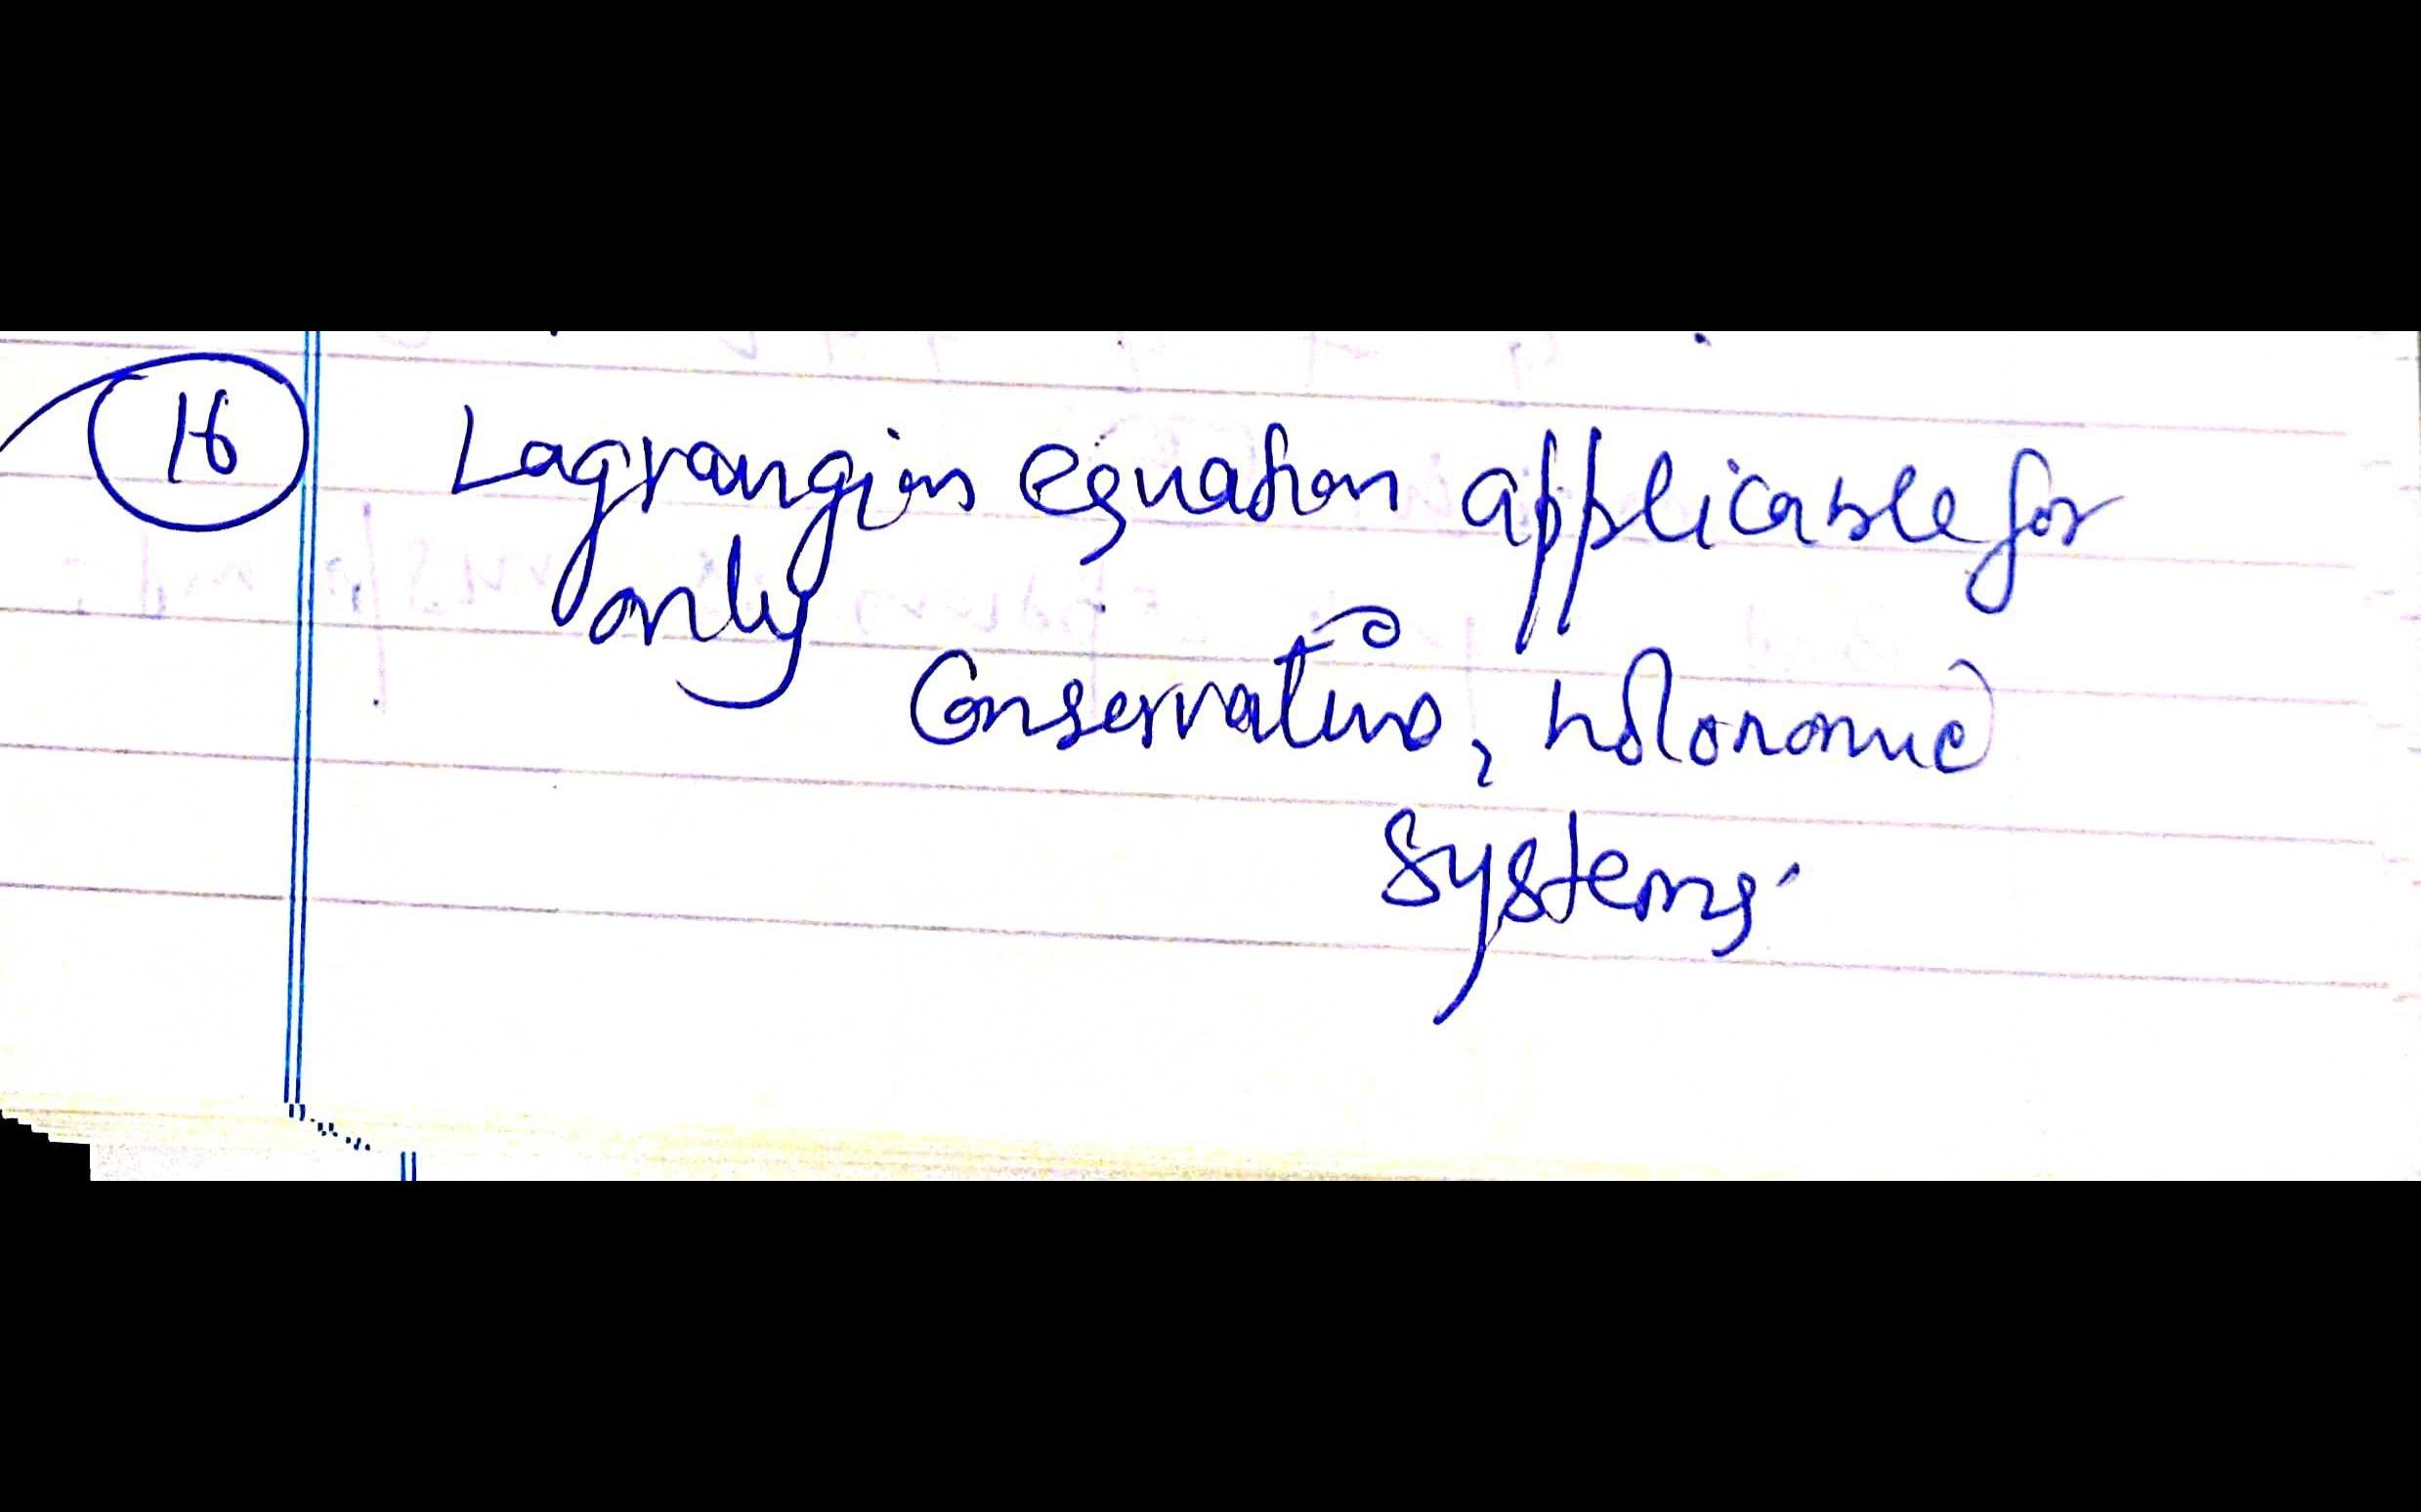 16 Lagrangian equation applicable for
only
Conservative, holonomic
Systems.